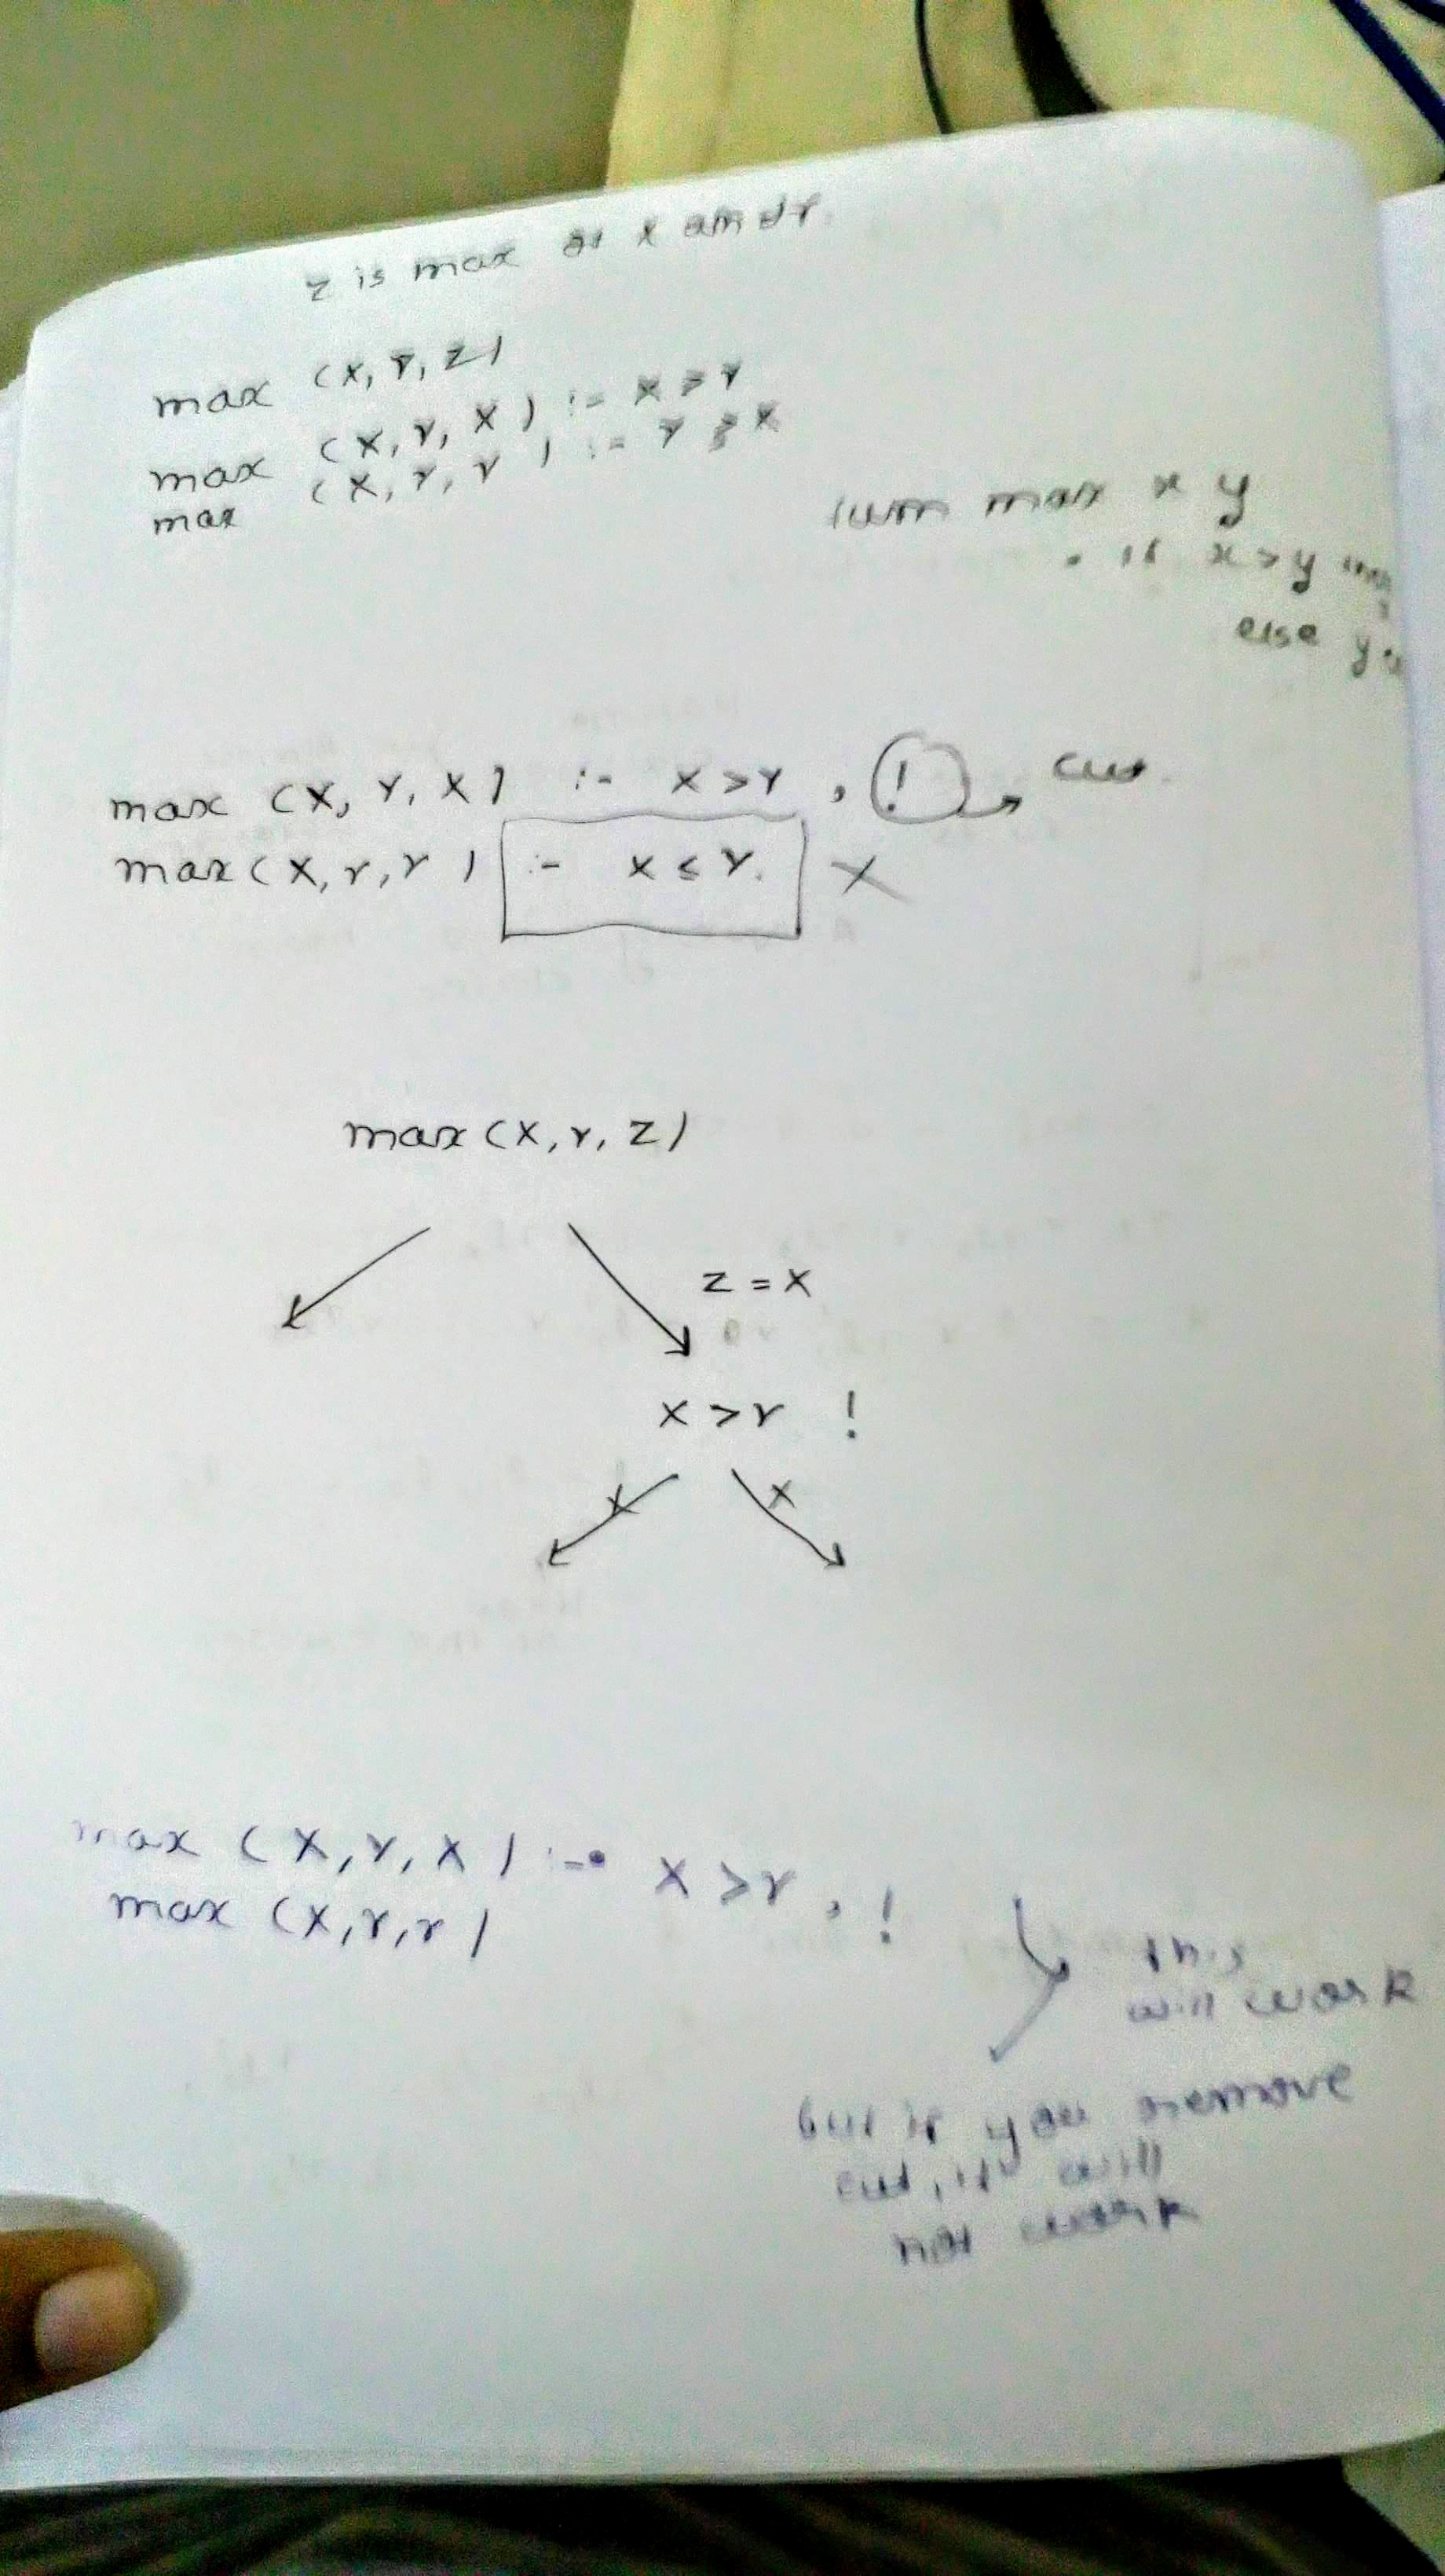 z is max of X and Y.
max (X, Y, Z)
max (X, Y, X) :- X > Y
max (X, Y, Y) :- Y X
max x y
if x > y
else
max (X, Y, X) :- X > Y , ! cut.
max (X, Y, Y) :- X ≤ Y. X
max (X, Y, Z)
Z = X
X > Y !
X X
max (X, Y, X) :- X > Y , !
max (X, Y, Y)
this
will work
but if you remove
cut, it will
not work